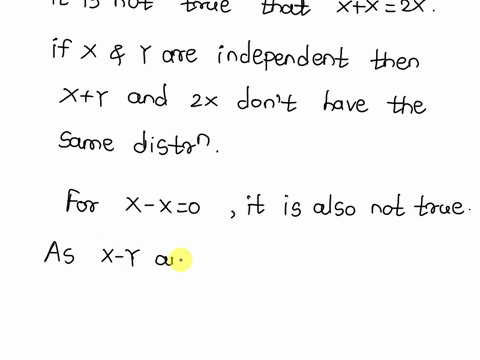 it is not true that X+X=2X.
if X & Y are independent then
X+Y and 2X don't have the
same distrⁿ.
For X-X=0, it is also not true.
As X-Y a